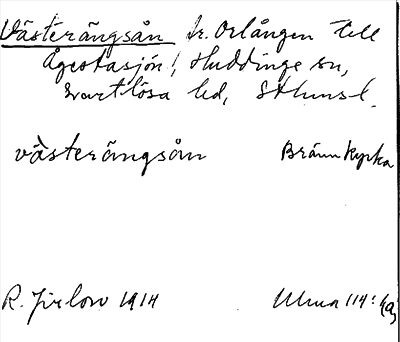 Västerängsån fr. Orlången till
Ågestasjön, Huddinge sn,
Svartlösa hd, Sthmsl.
västerängsån Brännkyrka
R. Jirlow 1914 Ulma 114: